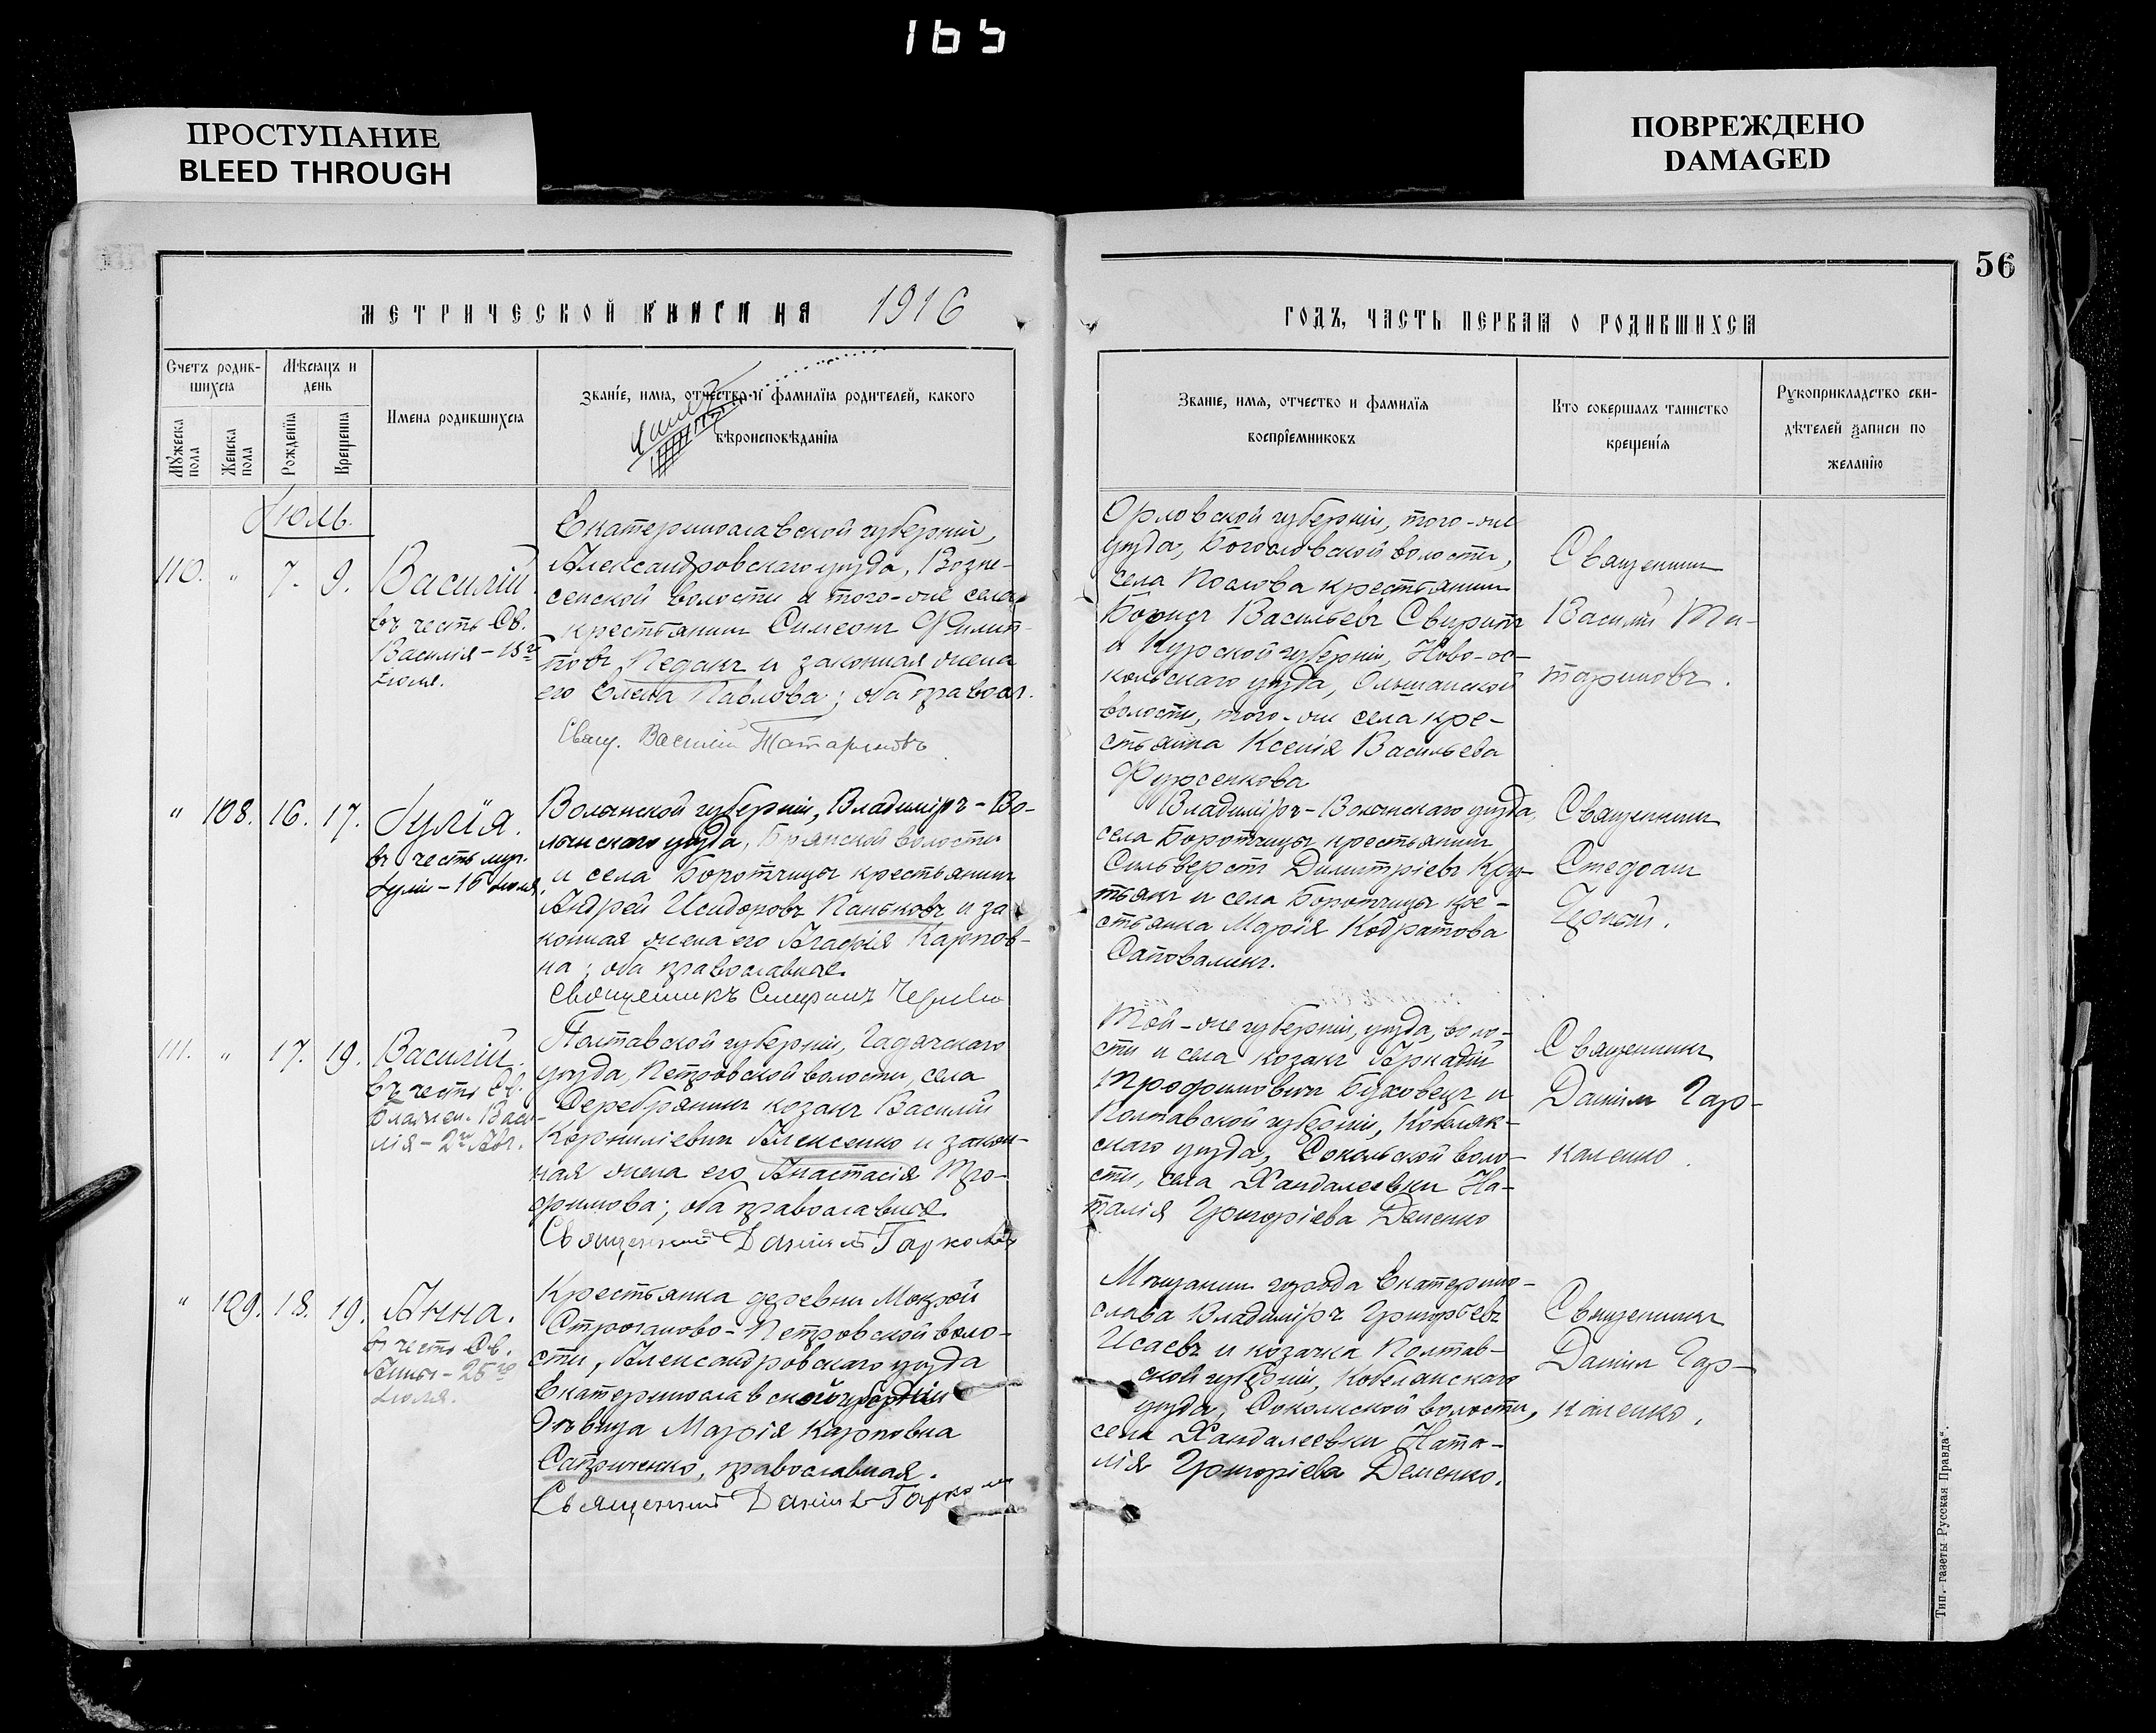 165
ПРОСТУПАНИЕ
BLEED THROUGH
ПОВРЕЖДЕНО
DAMAGED
56
МЕТРИЧЕСКОЙ КНИГИ НА 1916
ГОДЪ, ЧАСТЬ ПЕРВАЯ О РОДИВШИХСЯ
Счетъ родив-
шихся
Мѣсяцъ и
день
Мужеска
пола
Женска
пола
Рожденія
Крещенія
Имена родившихся
Званіе, имя, отчество и фамилія родителей, какого
вѣроисповѣданія
Званіе, имя, отчество и фамилія
воспріемниковъ
Кто совершалъ таинство
крещенія
Рукоприкладство сви-
дѣтелей записи по
желанію
Июль.
110. " 7. 9. Василій
въ честь Св.
Василія - 15го
Екатеринославской губерніи,
Александровскаго уѣзда, Возне-
сенской волости и того-же села
крестьянинъ Симеонъ Филип-
повъ Педанъ и законная жена
его Елена Павлова; оба правосл.
Свящ. Василій Татариновъ
Орловской губерніи, того-же
уѣзда, Богословской волости,
села Послова крестьянинъ
Борисъ Васильевъ
и Курской губерніи, Ново-ос-
кольскаго уѣзда, Ольшанской
волости, того-же села кре-
стьянка Ксенія Васильева
Фурсенкова
Священникъ
Василій Та-
тариновъ.
" 108. 16. 17. Іулія.
въ честь муч.
Іуліи - 16 Іюля
Волынской губерніи, Владиміръ-Во-
лынскаго уѣзда, волости
и села крестьянинъ
Андрей Исидоровъ Паньковъ и за-
конная жена его Карпов-
на; оба православные.
Священникъ
Владиміръ-Волынскаго уѣзда,
села крестьянинъ
Сильверстъ Димитріевъ
и села кре-
стьянка Марія
Священникъ
111. " 17. 19. Василій.
въ честь Св.
Блажен. Васи-
лія - 2го Авг.
Полтавской губерніи, Гадячскаго
уѣзда, Петровской волости, села
козакъ Василій
Корниліевичъ Алексенко и закон-
ная жена его Анастасія Тро-
фимова; оба православные.
Священникъ Даніилъ
Той-же губерніи, уѣзда, воло-
сти и села козакъ Аркадій
Трофимовичъ Буховецъ и
Полтавской губерніи, Кобеляк-
скаго уѣзда, Сокольской воло-
сти, села Хандалеевки На-
талія Григоріева Деменко
Священникъ
Даніилъ Гар-
каленко.
" 109. 18. 19. Анна.
въ честь Св.
Анны - 25го
Іюля.
Крестьянка деревни Мокрой
Строганово-Петровской воло-
сти, Александровскаго уѣзда
Екатеринославской губерніи
дѣвица Марія Карповна
православная.
Священникъ Даніилъ
Мѣщанинъ города Екатерино-
слава Владиміръ Григорьевъ
Исаевъ и козачка Полтав-
ской губерніи, Кобелякскаго
уѣзда, Сокольской волости,
села Хандалеевки Ната-
лія Григоріева Деменко.
Священникъ
Даніилъ Гар-
каленко.
Тип. газеты „Русская Правда".